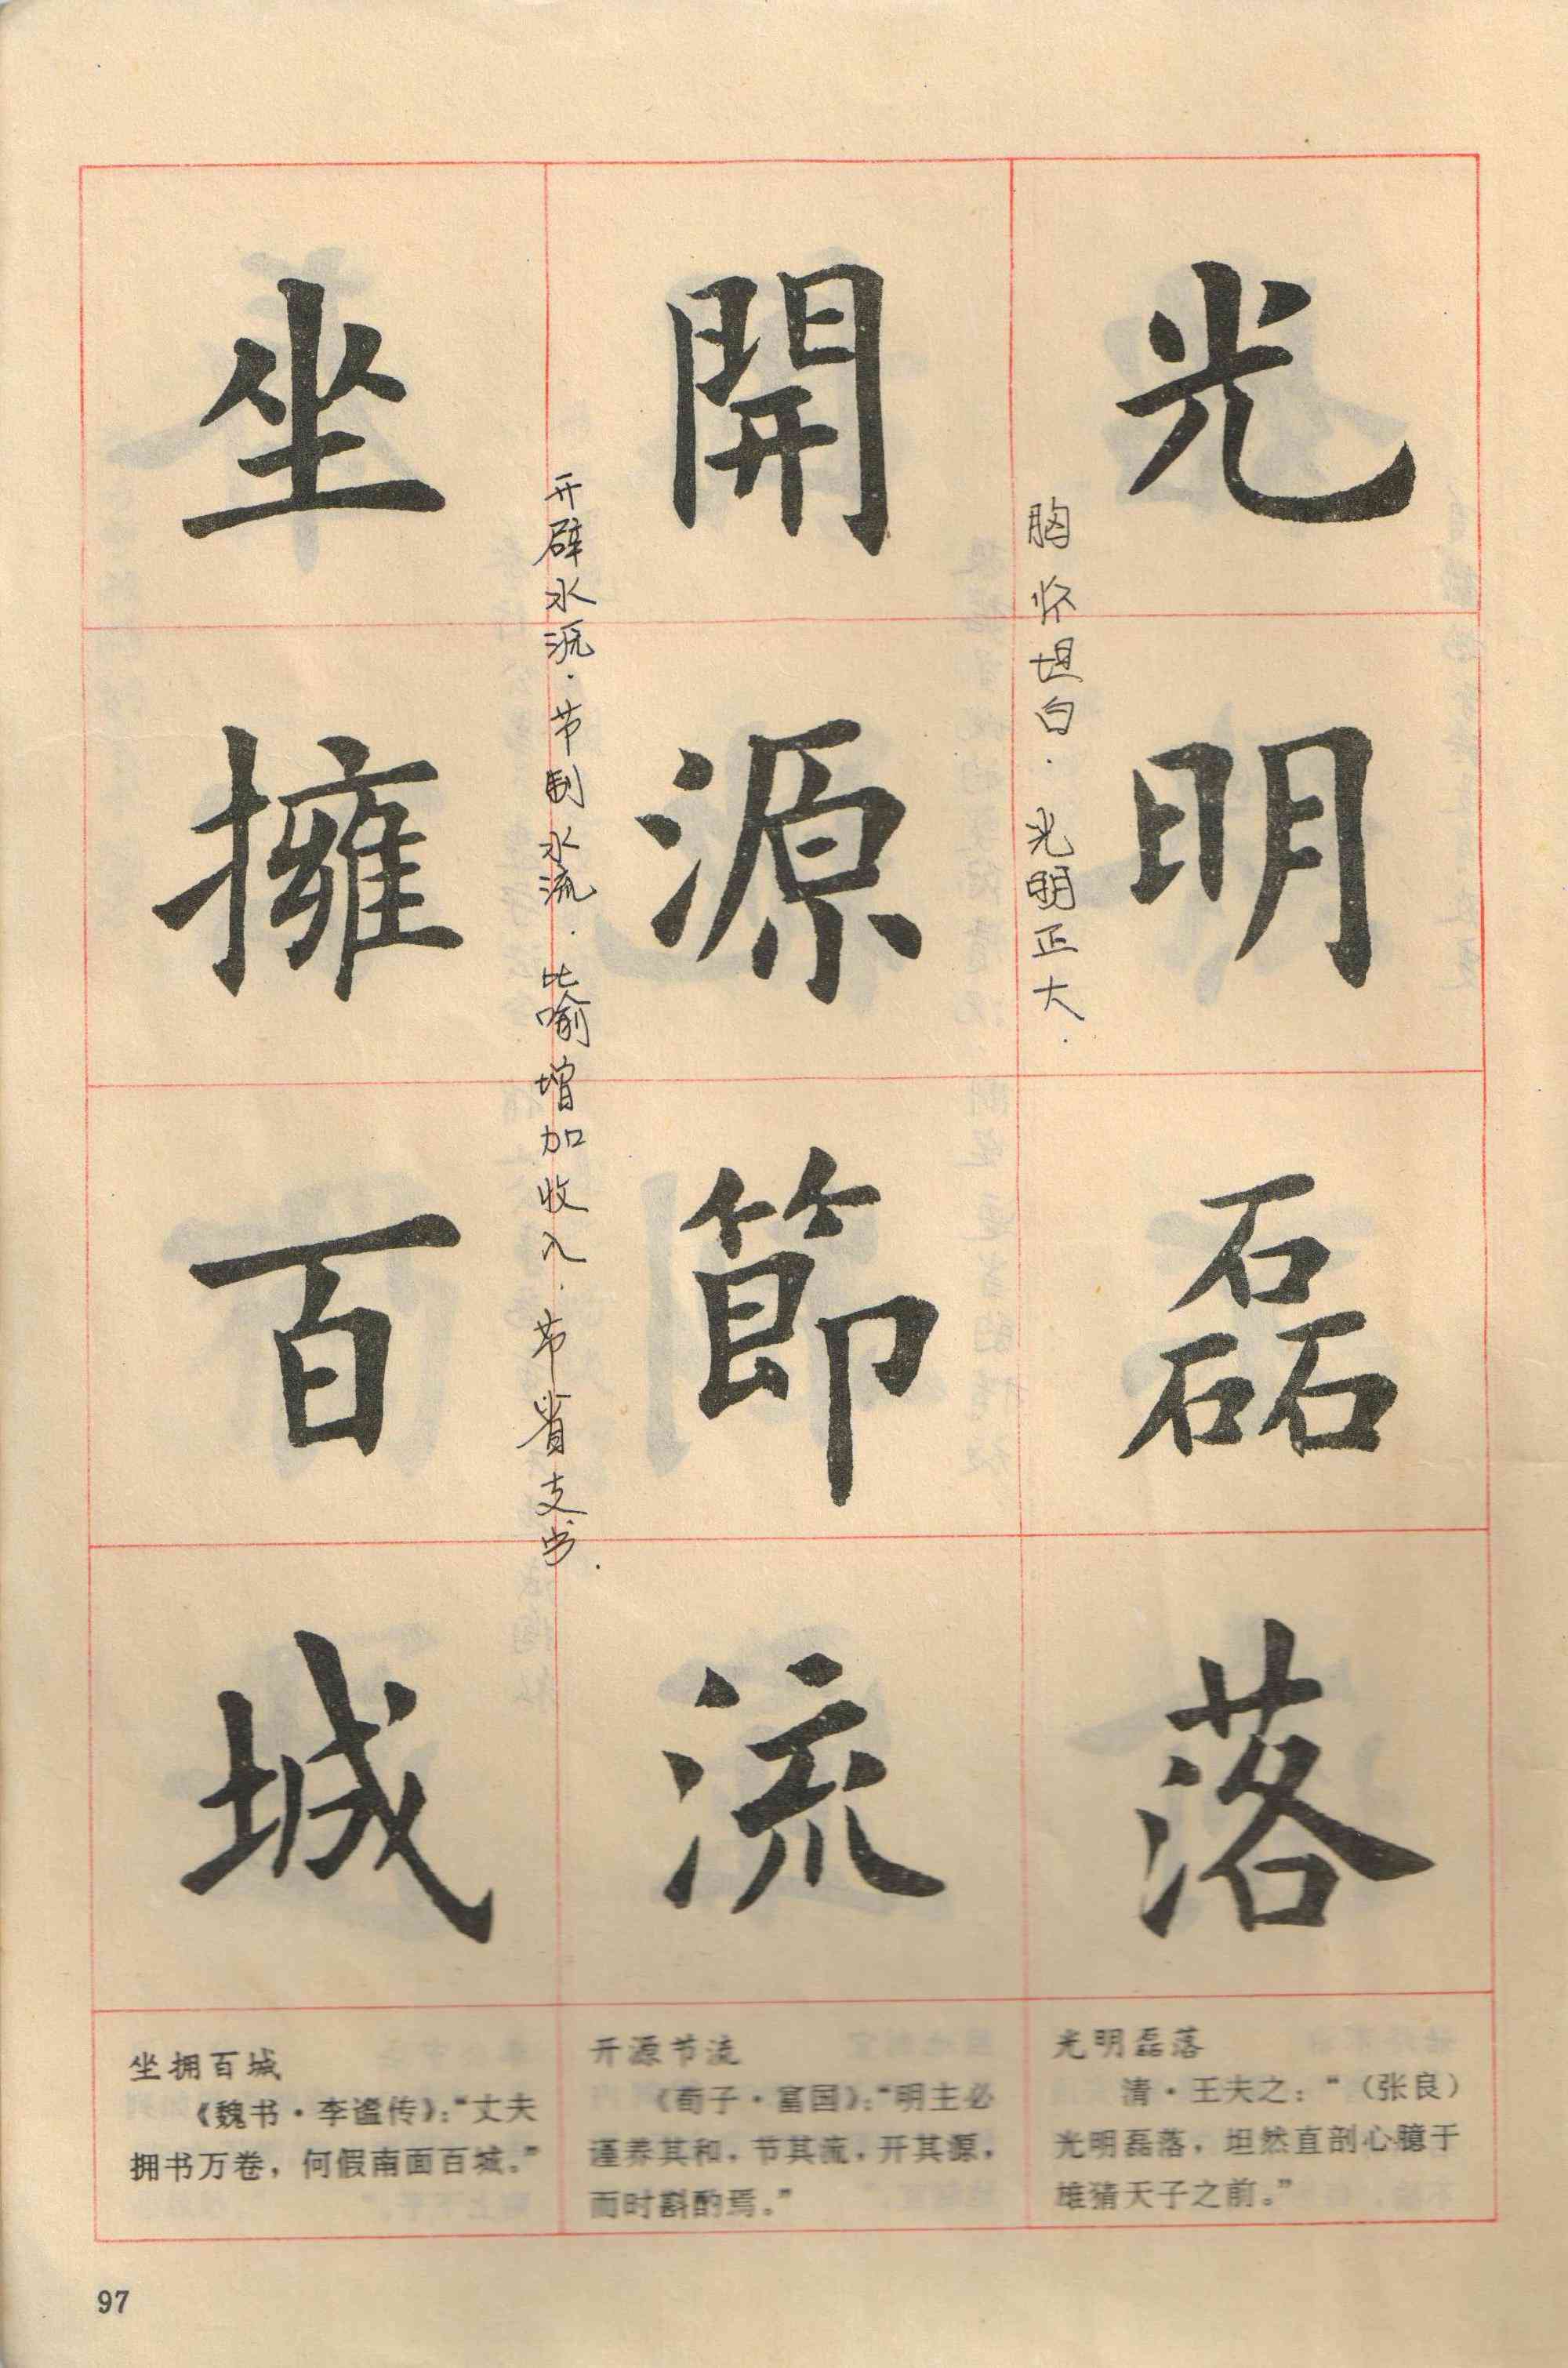 光明磊落
胸怀坦白．光明正大．
開源節流
开辟水源．节制水流．比喻增加收入．节省支出．
坐擁百城
光明磊落
清·王夫之：“（张良）
光明磊落，坦然直剖心臆于
雄猜天子之前。”
开源节流
《荀子·富国》：“明主必
谨养其和，节其流，开其源，
而时斟酌焉。”
坐拥百城
《魏书·李谧传》：“丈夫
拥书万卷，何假南面百城。”
97